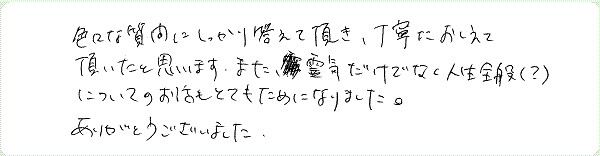 色々な質問にしっかり答えて頂き、丁寧におしえて
頂いたと思います。また、靈気だけでなく人生全般(?)
についてのお話もとてもためになりました。
ありがとうございました。